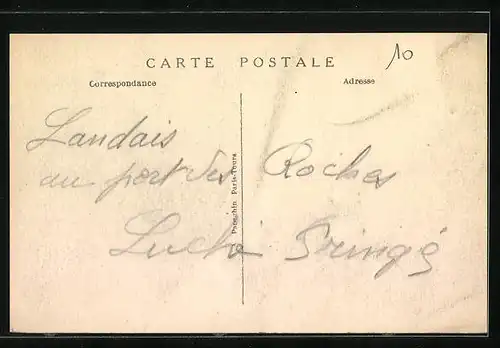 CARTE POSTALE
10
Correspondance
Adresse
Landais
au port des Roches
Luché Pringé
Paris-Tours